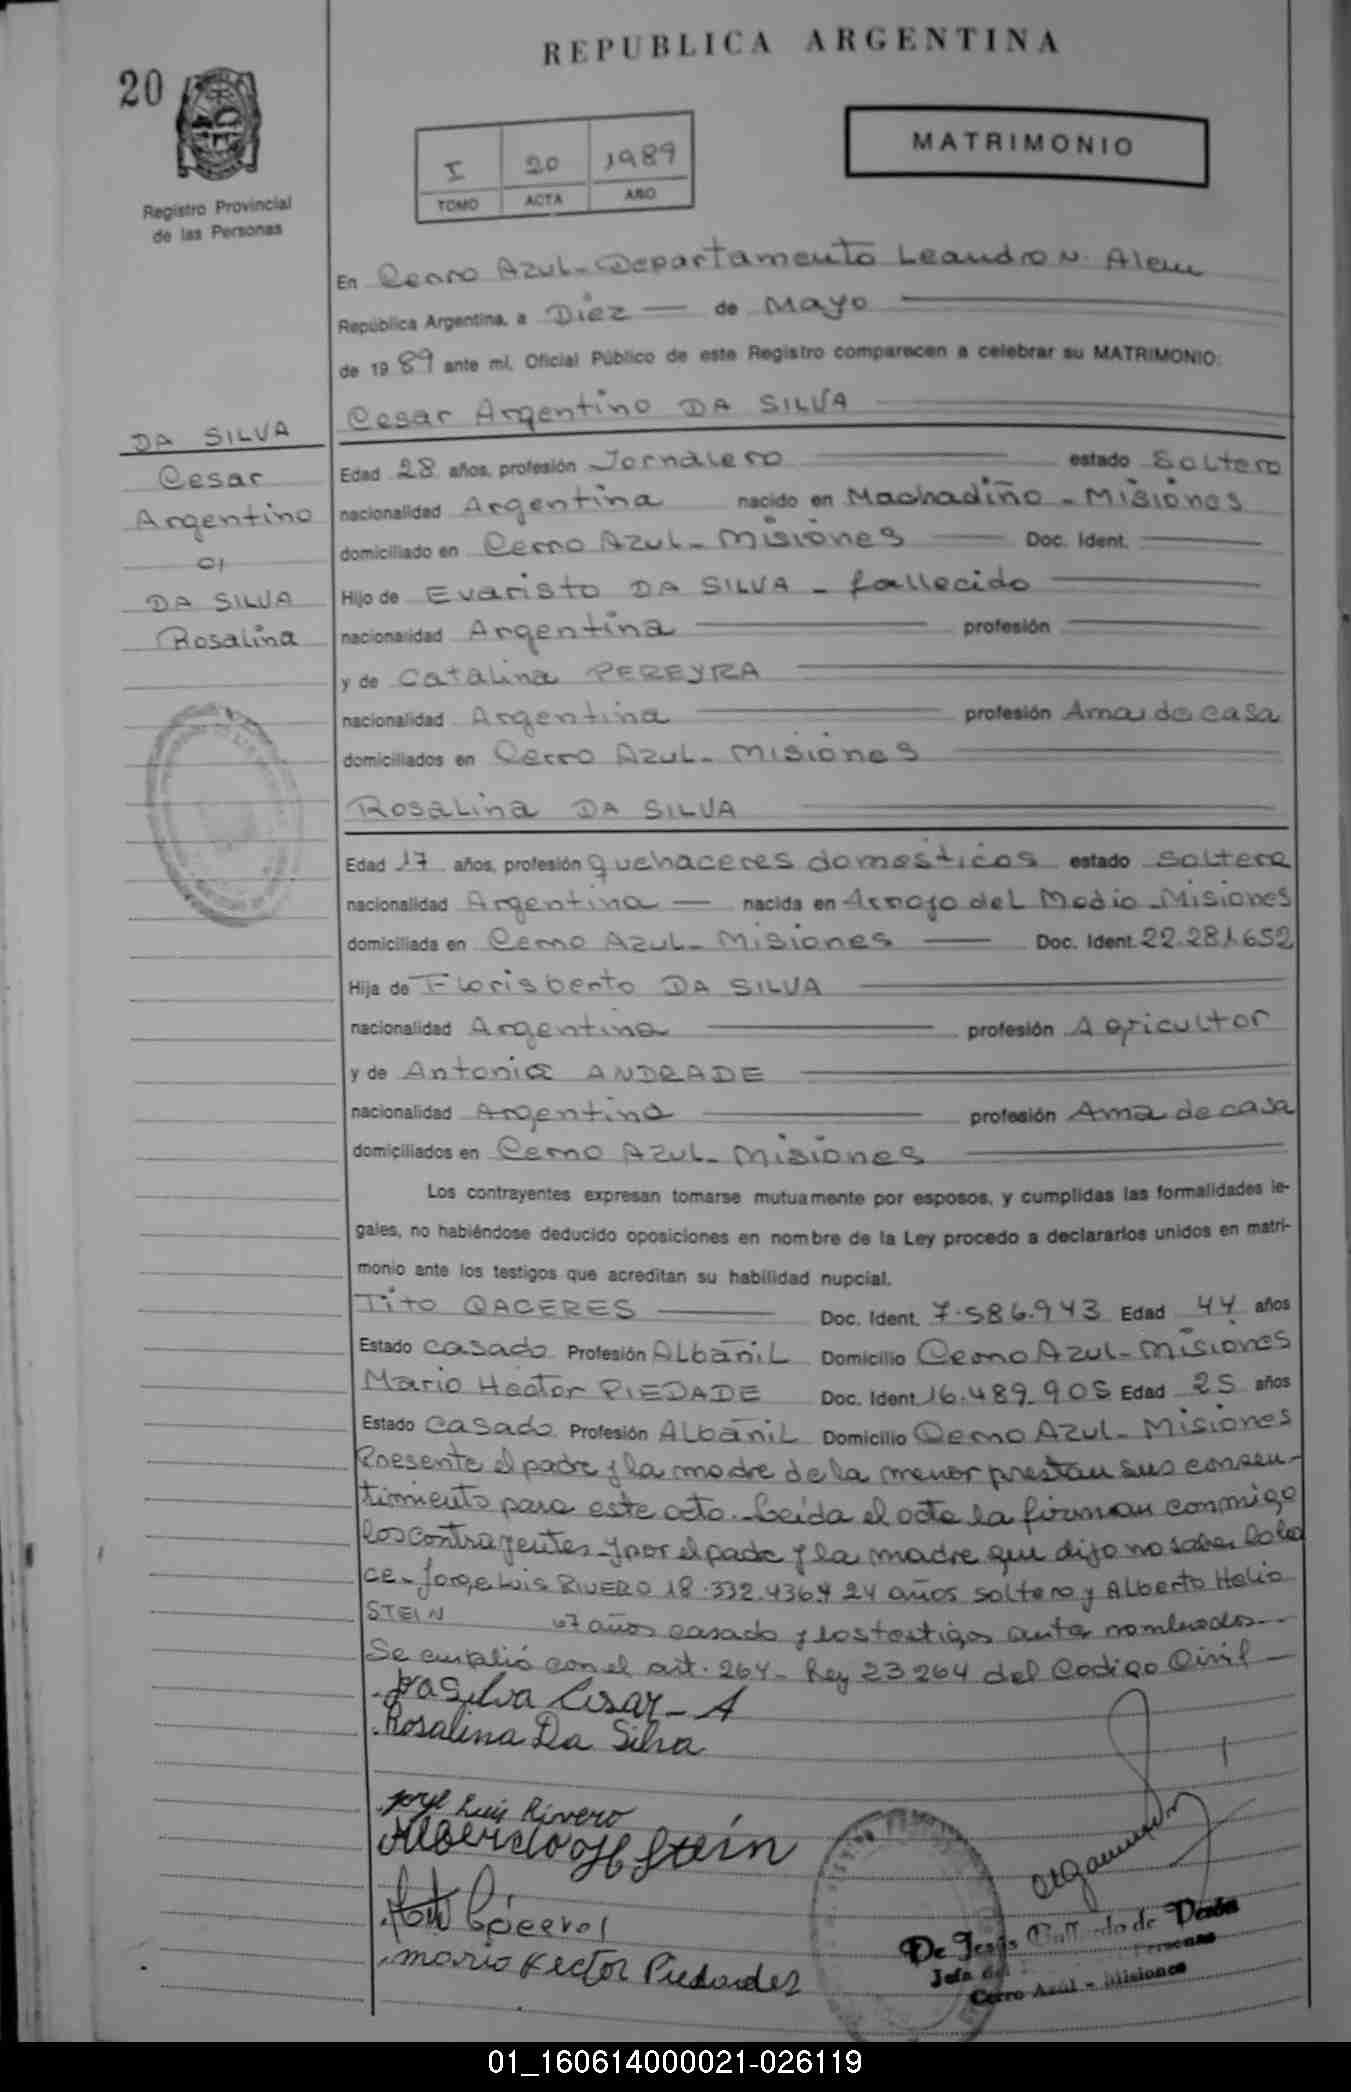 REPUBLICA ARGENTINA
20
MATRIMONIO
I 20 1989
TOMO ACTA AÑO
Registro Provincial
de las Personas
En Cerro Azul - Departamento Leandro N. Alem
República Argentina, a Diez de Mayo
de 1989 ante mí, Oficial Público de este Registro comparecen a celebrar su MATRIMONIO:
Cesar Argentino DA SILVA
DA SILVA
Cesar
Argentino
DA SILVA
Rosalina
Edad 28 años, profesión Jornalero estado Soltero
nacionalidad Argentina nacido en Machadiño - Misiones
domiciliado en Cerro Azul - Misiones Doc. Ident.
Hijo de Evaristo DA SILVA - fallecido
nacionalidad Argentina profesión
y de Catalina PEREYRA
nacionalidad Argentina profesión Ama de casa
domiciliados en Cerro Azul - Misiones
Rosalina DA SILVA
Edad 17 años, profesión quehaceres domesticos estado Soltera
nacionalidad Argentina nacida en Arroyo del Medio - Misiones
domiciliada en Cerro Azul - Misiones Doc. Ident. 22.281.652
Hija de Florisberto DA SILVA
nacionalidad Argentina profesión Agricultor
y de Antonia ANDRADE
nacionalidad Argentina profesión Ama de casa
domiciliados en Cerro Azul - Misiones
Los contrayentes expresan tomarse mutuamente por esposos, y cumplidas las formalidades le-
gales, no habiéndose deducido oposiciones en nombre de la Ley procedo a declararlos unidos en matri-
monio ante los testigos que acreditan su habilidad nupcial.
Tito CACERES Doc. Ident. 7.586.943 Edad 44 años
Estado casado Profesión Albañil Domicilio Cerro Azul - Misiones
Mario Hector PIEDADE Doc. Ident. 16.489.905 Edad 25 años
Estado Casado Profesión Albañil Domicilio Cerro Azul - Misiones
Presente el padre y la madre de la menor prestan sus consen-
timiento para este acto. Leída el acta la firman conmigo
los contrayentes y por el padre y la madre que dijo no saber lo ha
ce - Jorge Luis RIVERO 18.332.436 24 años soltero y Alberto Helio
STEIN 67 años casado y los testigos antes nombrados
Se cumplió con el art. 264 - Ley 23264 del Codigo Civil
Da Silva Cesar - A
Rosalina Da Silva
Jorge Luis Rivero
Alberto H Stein
Tito Cáceres
Mario Hector Piedade
De Jesús Gallardo de
Jefa del Personas
Cerro Azul - Misiones
01_160614000021-026119